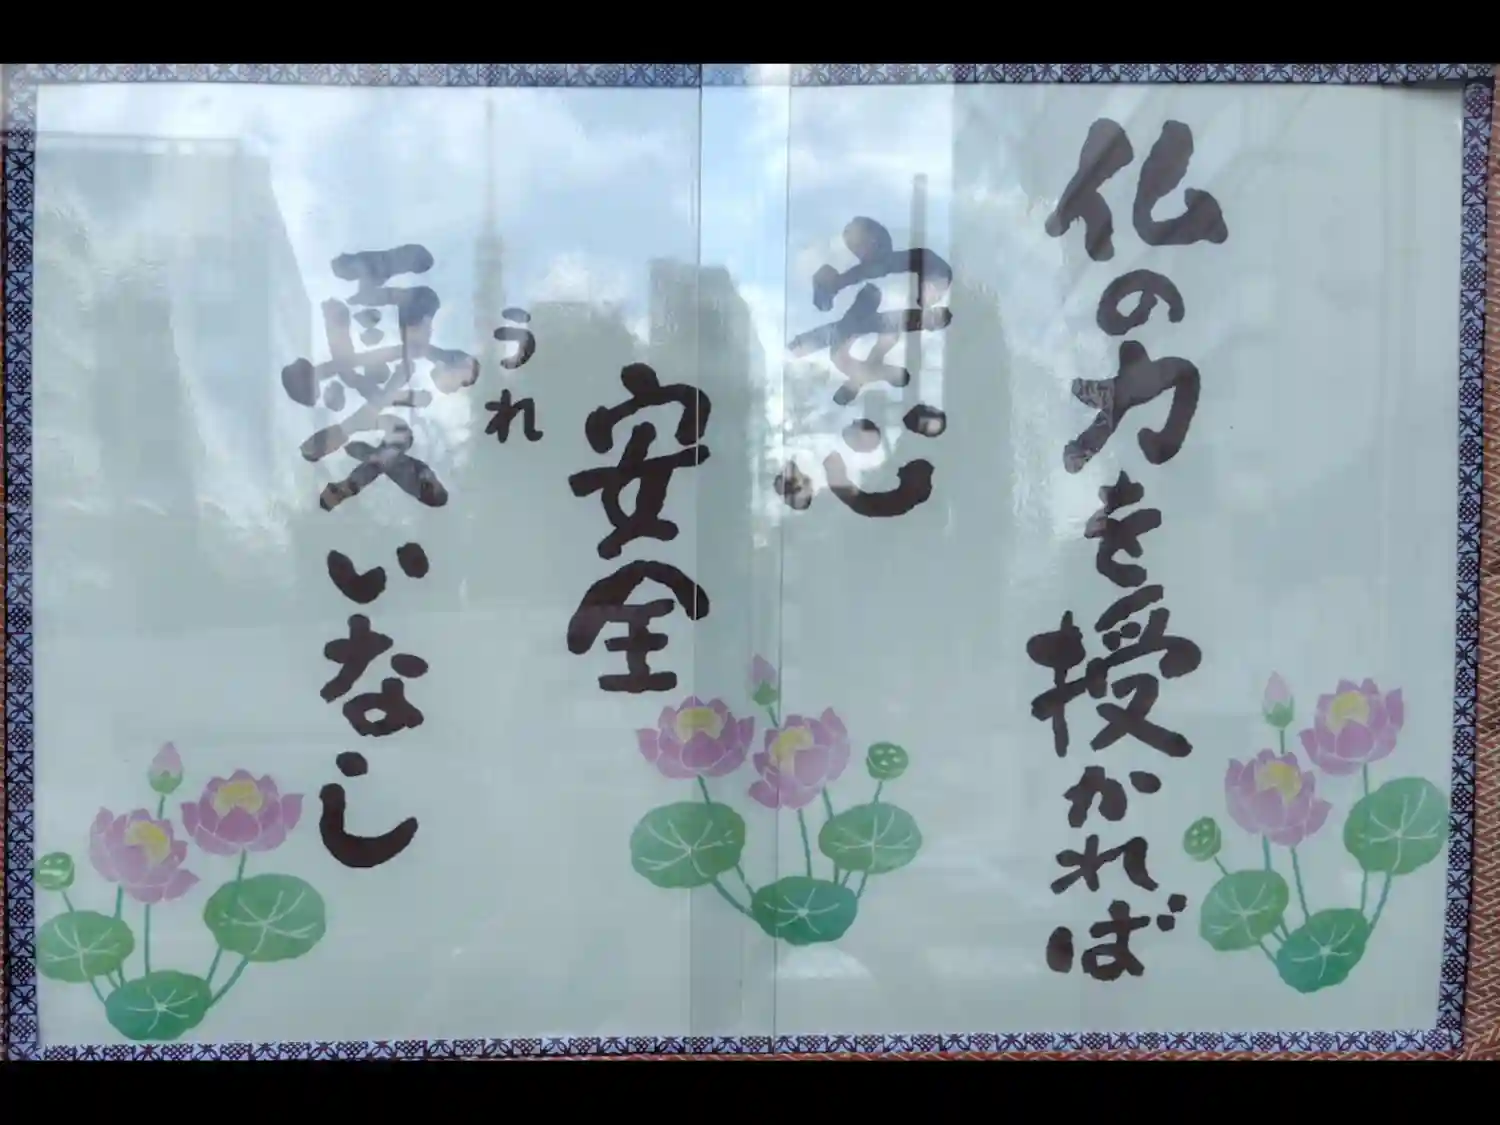 仏の力を授かれば
安心
安全
憂いなし
うれ